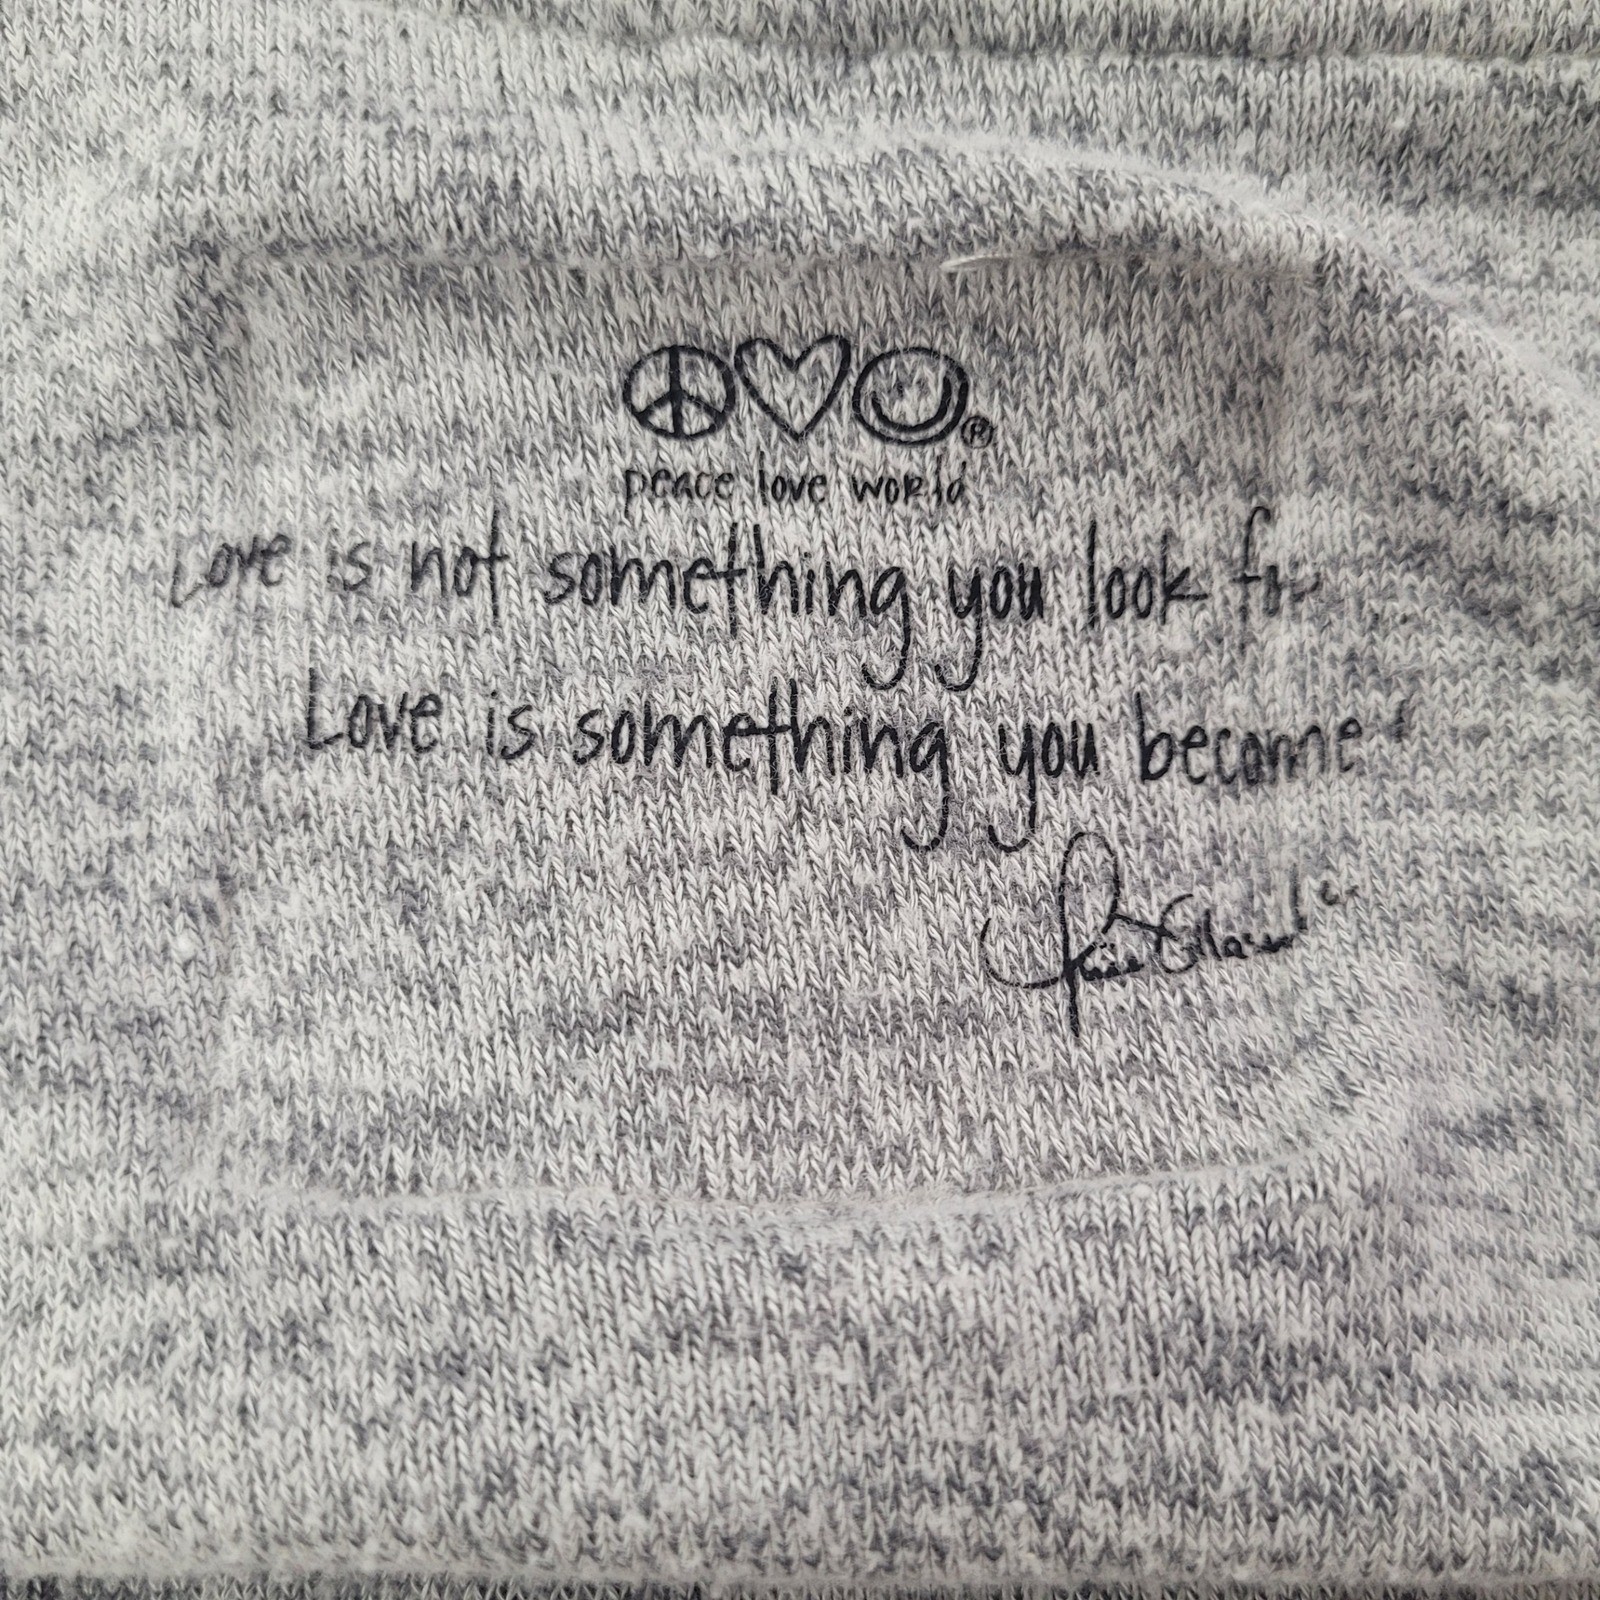 ®
peace love world
Love is not something you look for
Love is something you become!